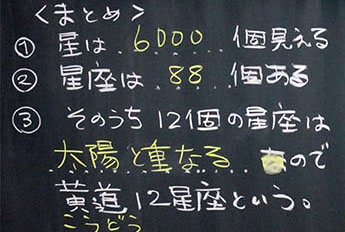 <まとめ>
① 星は 6000 個見える
② 星座は 88 個ある
③ そのうち12個の星座は
太陽と重なる ので
黄道12星座という。
こうどう